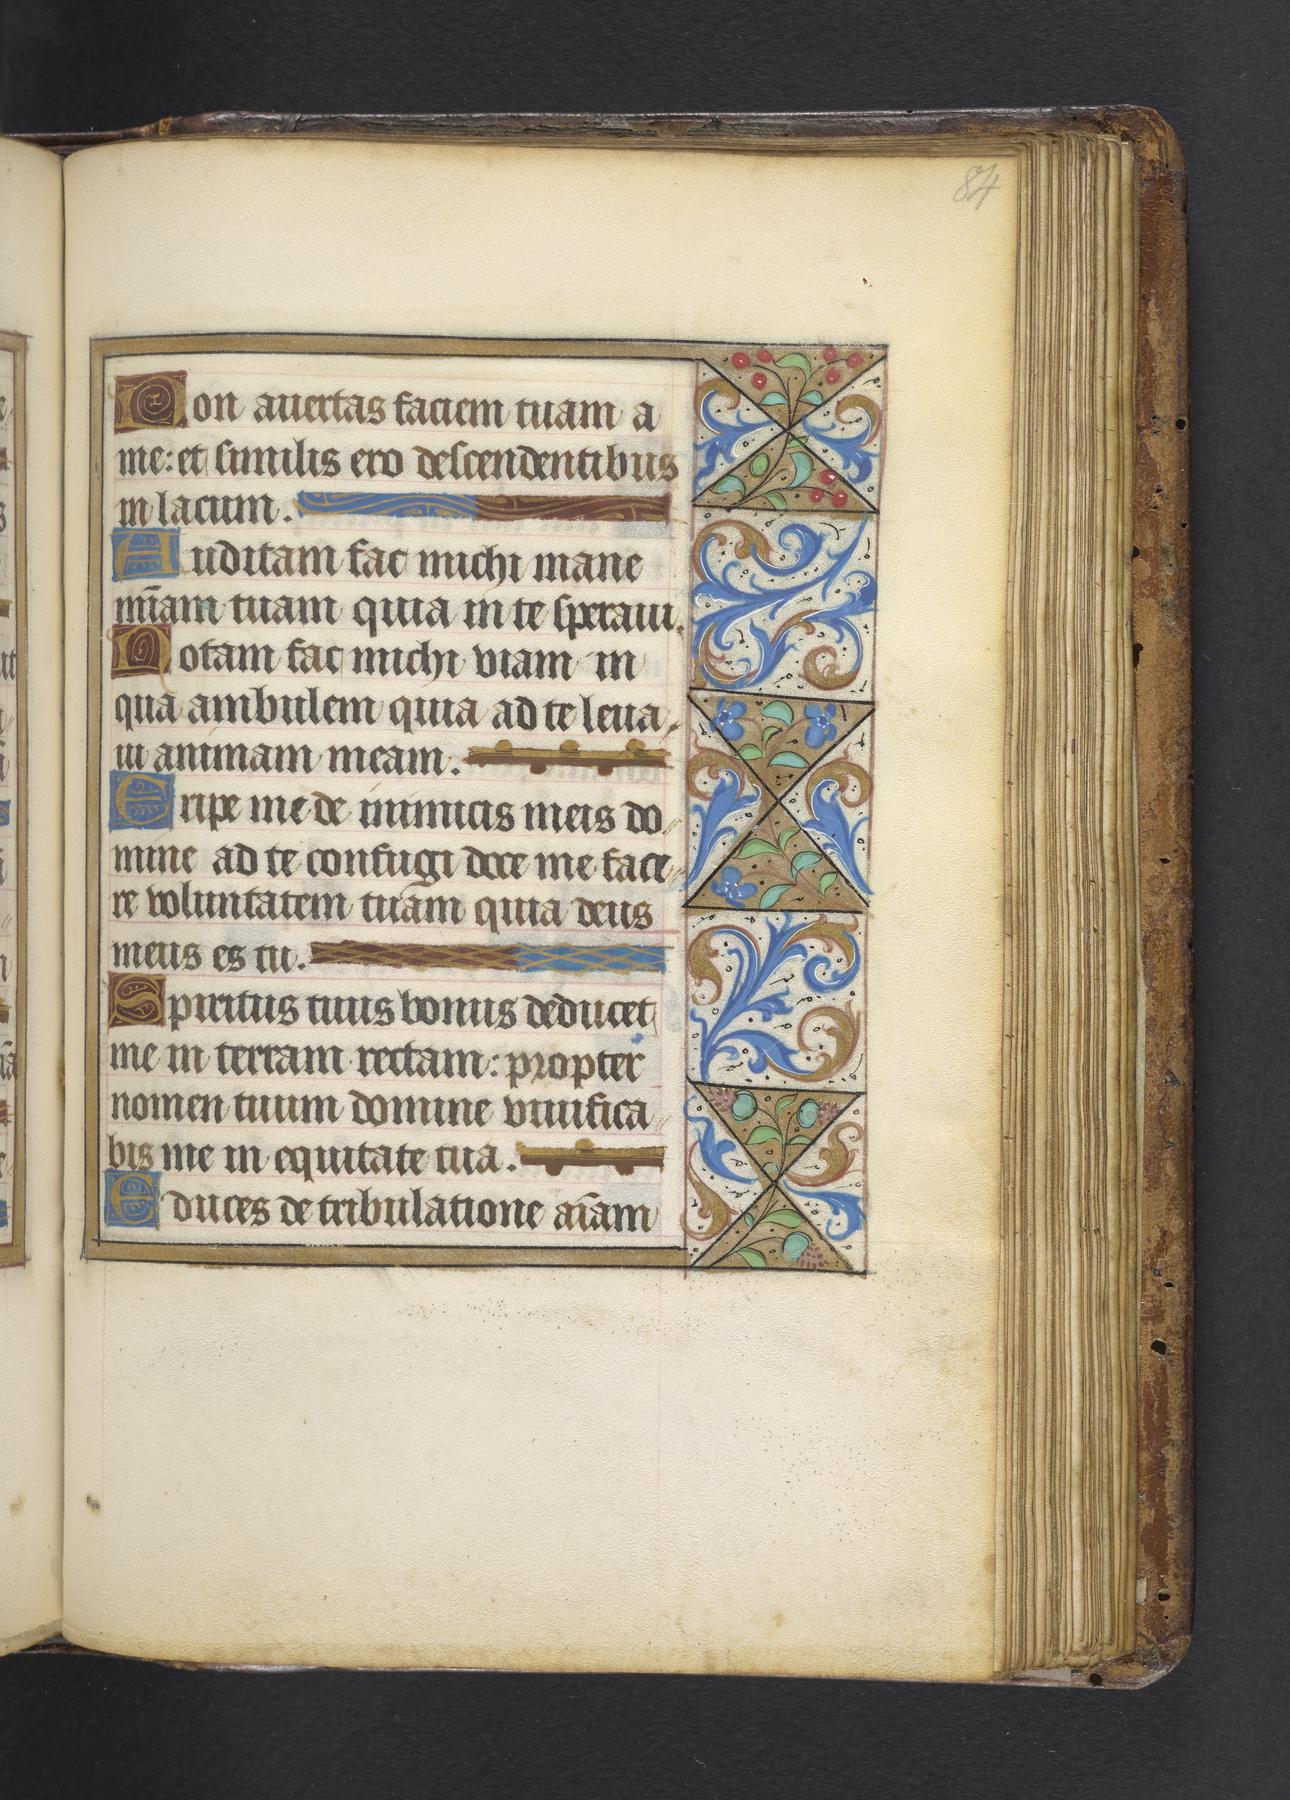 84
Non auertas faciem tuam a
me: et similis ero descendentibus
in lacum.
Auditam fac michi mane
mĩam tuam quia in te speraui.
Notam fac michi viam in
qua ambulem quia ad te leua
ui animam meam.
Eripe me de inimicis meis do
mine ad te confugi doce me face
re voluntatem tuam quia deus
meus es tu.
Spiritus tuus bonus deducet
me in terram rectam: propter
nomen tuum domine viuifica
bis me in equitate tua.
Educes de tribulatione aĩam